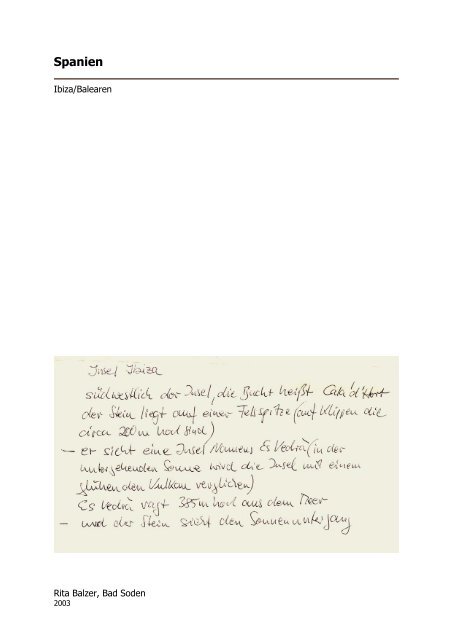 Spanien
Ibiza/Balearen
Insel Ibiza
südwestlich der Insel, die Bucht heißt Cala d'Hort
der Stein liegt auf einer Felsspitze (auf Klippen die
circa 200m hoch sind)
– er sieht eine Insel Namens Es Vedrà (in der
untergehenden Sonne wird die Insel mit einem
glühenden Vulkan verglichen)
Es Vedrà ragt 385m hoch aus dem Meer
– und der Stein sieht den Sonnenuntergang
Rita Balzer, Bad Soden
2003